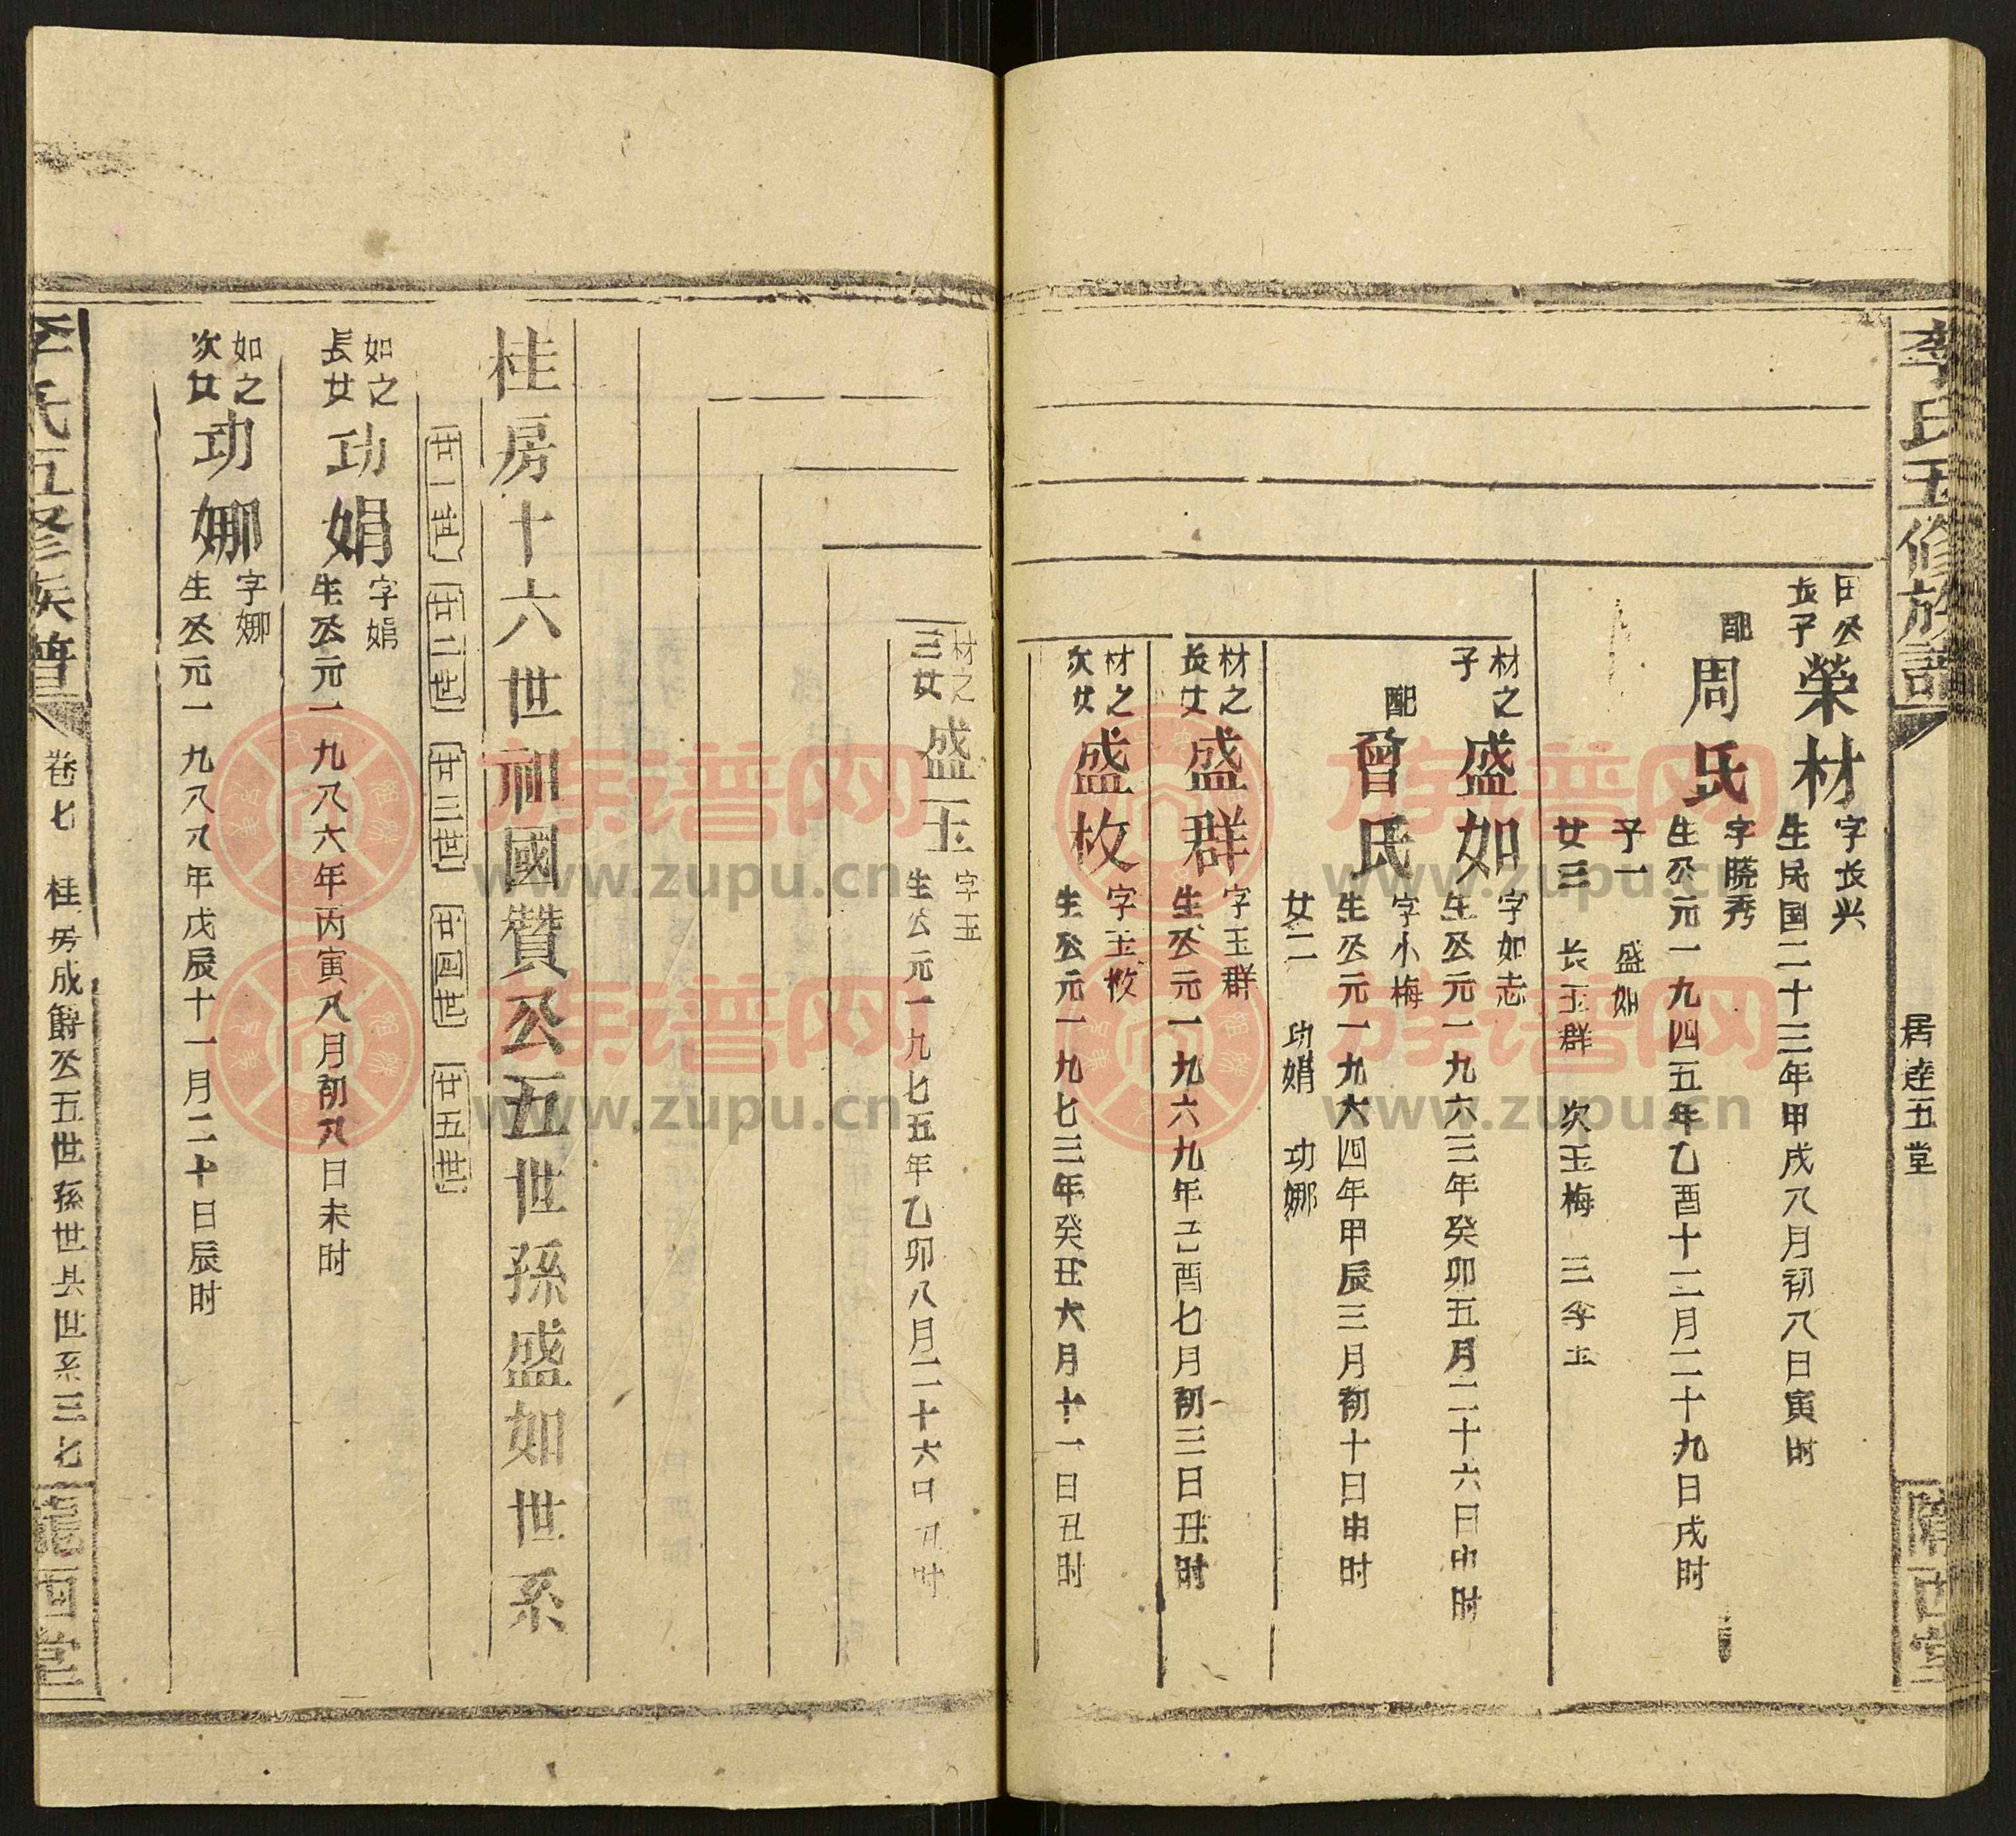 李氏五修族譜
居達五堂
隴西堂
田公長子
榮材
字长兴
生民国二十三年甲戌八月初八日寅时
配
周氏
字晓秀
生公元一九四五年乙酉十二月二十九日戌时
子一 盛如
女三 长玉群 次玉梅 三李玉
材之子
盛如
字如志
生公元一九六三年癸卯五月二十六日申时
配
曾氏
字小梅
生公元一九六四年甲辰三月初十日申时
女二 功娟 功娜
材之長女
盛群
字玉群
生公元一九六九年己酉七月初三日丑时
材之次女
盛枚
字玉枚
生公元一九七三年癸丑六月十一日丑时
材之三女
盛玉
字玉
生公元一九七五年乙卯八月二十六日丑时
桂房十六世祖國贊公五世孫盛如世系
廿一世 廿二世 廿三世 廿四世 廿五世
如之長女
功娟
字娟
生公元一九八六年丙寅八月初八日未时
如之次女
功娜
字娜
生公元一九八八年戊辰十一月二十日辰时
李氏五修族譜
卷七 桂房成爵公五世孫世兵世系三七
隴西堂
族谱网
www.zupu.cn
族谱网
www.zupu.cn
族谱网
www.zupu.cn
族谱网
www.zupu.cn